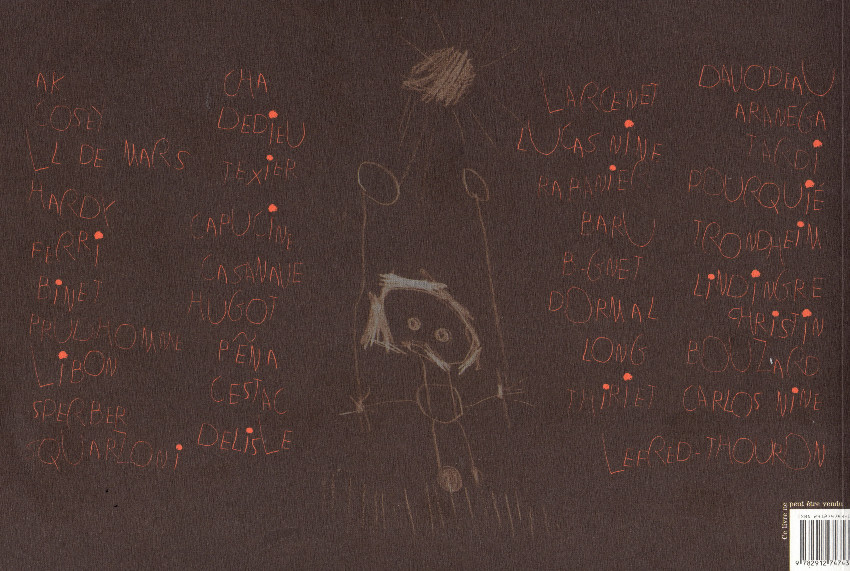 AK
COSEY
LL DE MARS
HARDY
FERRI
BINET
PRUDHOMME
LIBON
SPERBER
SQUARZONI
CHA
DEDIEU
TEXIER
CAPUCINE
CASANAVE
HUGOT
PEÑA
CESTAC
DELISLE
LARCENET
LUCAS NINE
RABANIEL
BARU
BIGNET
DORMAL
LONG
THIRIET
DAVODEAU
ARANEGA
TARDI
POURQUIÉ
TRONDHEIM
LINDINGRE
CHRISTIN
BOUZARD
CARLOS NINE
LEFRED-THOURON
Ce livre ne peut être vendu
9 782912 747433